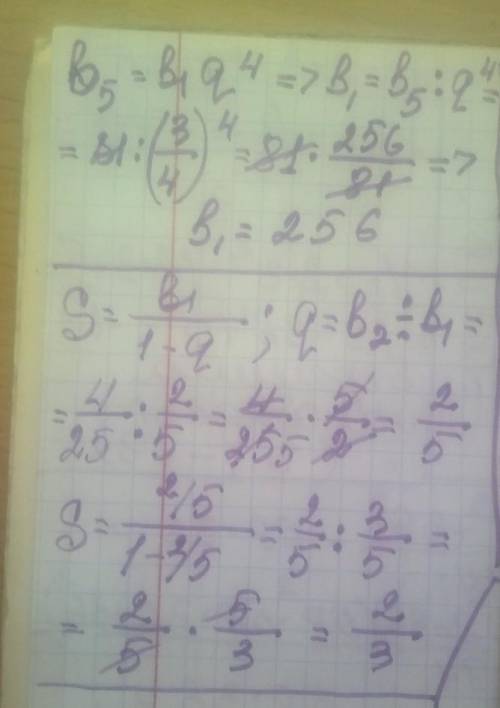 b₅ = b₁ q⁴ => b₁ = b₅ : q⁴ =
= 81 : (3/4)⁴ = 81 · 256/81 =>
b₁ = 256
S = b₁/(1 - q) ; q = b₂ ÷ b₁ =
= 4/25 : 2/5 = 4/25 5 · 5/2 = 2/5
S = (2/5)/(1 - 2/5) = 2/5 : 3/5 =
= 2/5 · 5/3 = 2/3